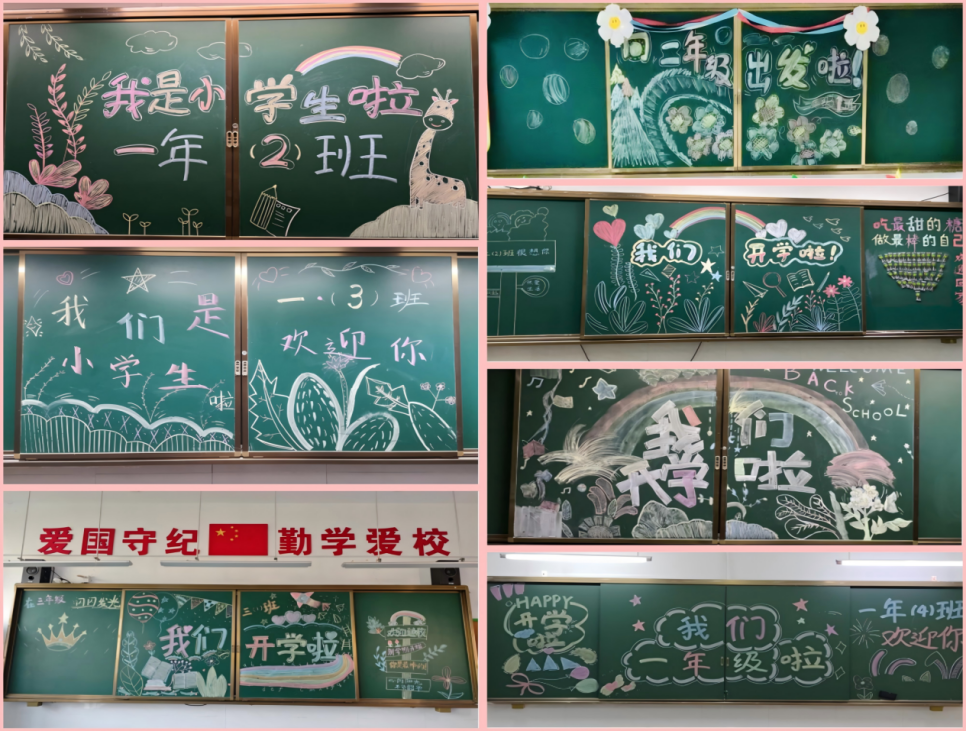 我是小学生啦
一年(2)班
我们是
小学生啦
一·(3)班
欢迎你
爱国守纪 勤学爱校
在三年级 闪闪发光
我们
三
班
开学啦
向二年级出发啦!
我们开学啦!
吃最甜的糖
做最棒的自己
欢迎回家
WELCOME
BACK
SCHOOL
我们
开学啦
HAPPY
开学
啦
我们
一年级啦
一年(4)班
欢迎你